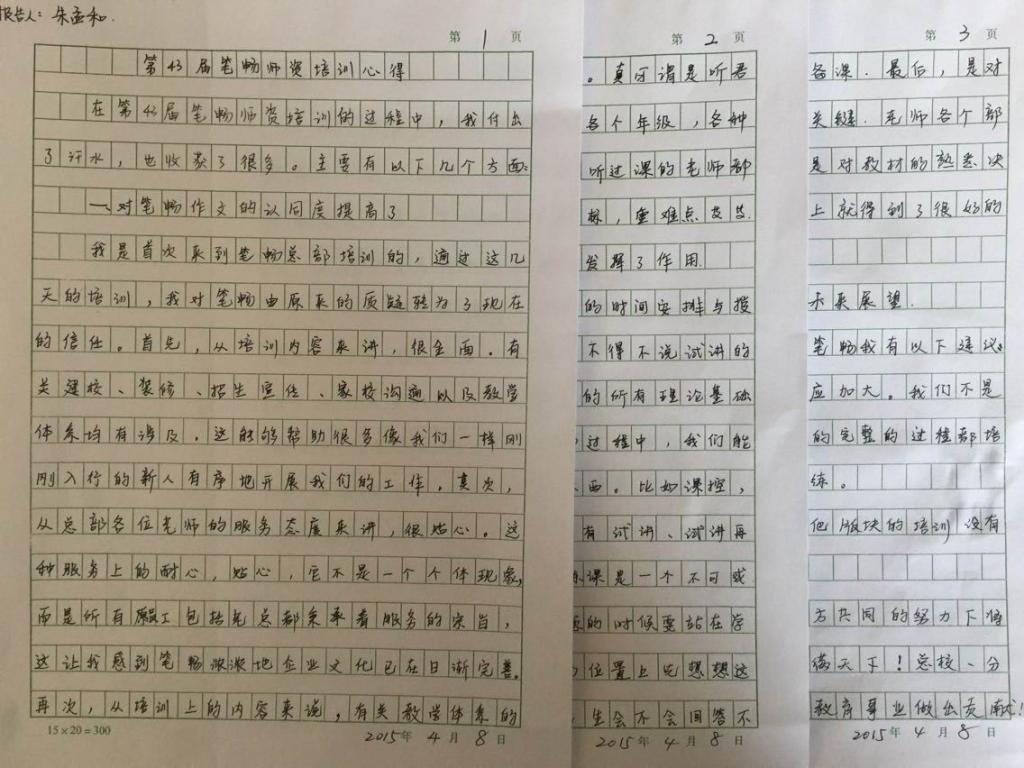 报告人：朱孟和.
第 1 页
第43届笔畅师资培训心得
在第43届笔畅师资培训的过程中，我付出
了汗水，也收获了很多。主要有以下几个方面：
一、对笔畅作文的认同度提高了
我是首次来到笔畅总部培训的，通过这几
天的培训，我对笔畅由原来的质疑转为了现在
的信任。首先，从培训内容来讲，很全面．有
关建校、装修、招生宣传、家校沟通以及教学
体系均有涉及．这能够帮助很多像我们一样刚
刚入行的新人有序地开展我们的工作．其次，
从总部各位老师的服务态度来讲，很贴心。这
种服务上的耐心，贴心，它不是一个个体现象，
而是所有员工包括总部秉承着服务的宗旨，
这让我感到笔畅浓浓地企业文化已在日渐完善。
再次，从培训上的内容来说，有关教学体系的
15×20=300
2015年 4 月 8 日
第 2 页
。真可谓是听君
各个年级，各种
听过课的老师都
标，重难点及其
发挥了作用．
的时间安排与授
不得不说试讲的
的所有理论基础
过程中，我们能
西。比如课控，
有试讲、试讲再
课是一个不可或
的时候要站在学
位置上先想想这
生会不会回答不
2015年 4 月 8 日
第 3 页
备课．最后，是对
关键．老师各个部
是对教材的熟悉决
上就得到了很好的
未来展望．
笔畅我有以下建议：
应加大。我们不是
的完整的过程都培
练。
他版块的培训没有
方共同的努力下语
满天下！总校、分
教育事业做出贡献！
2015年 4 月 8 日